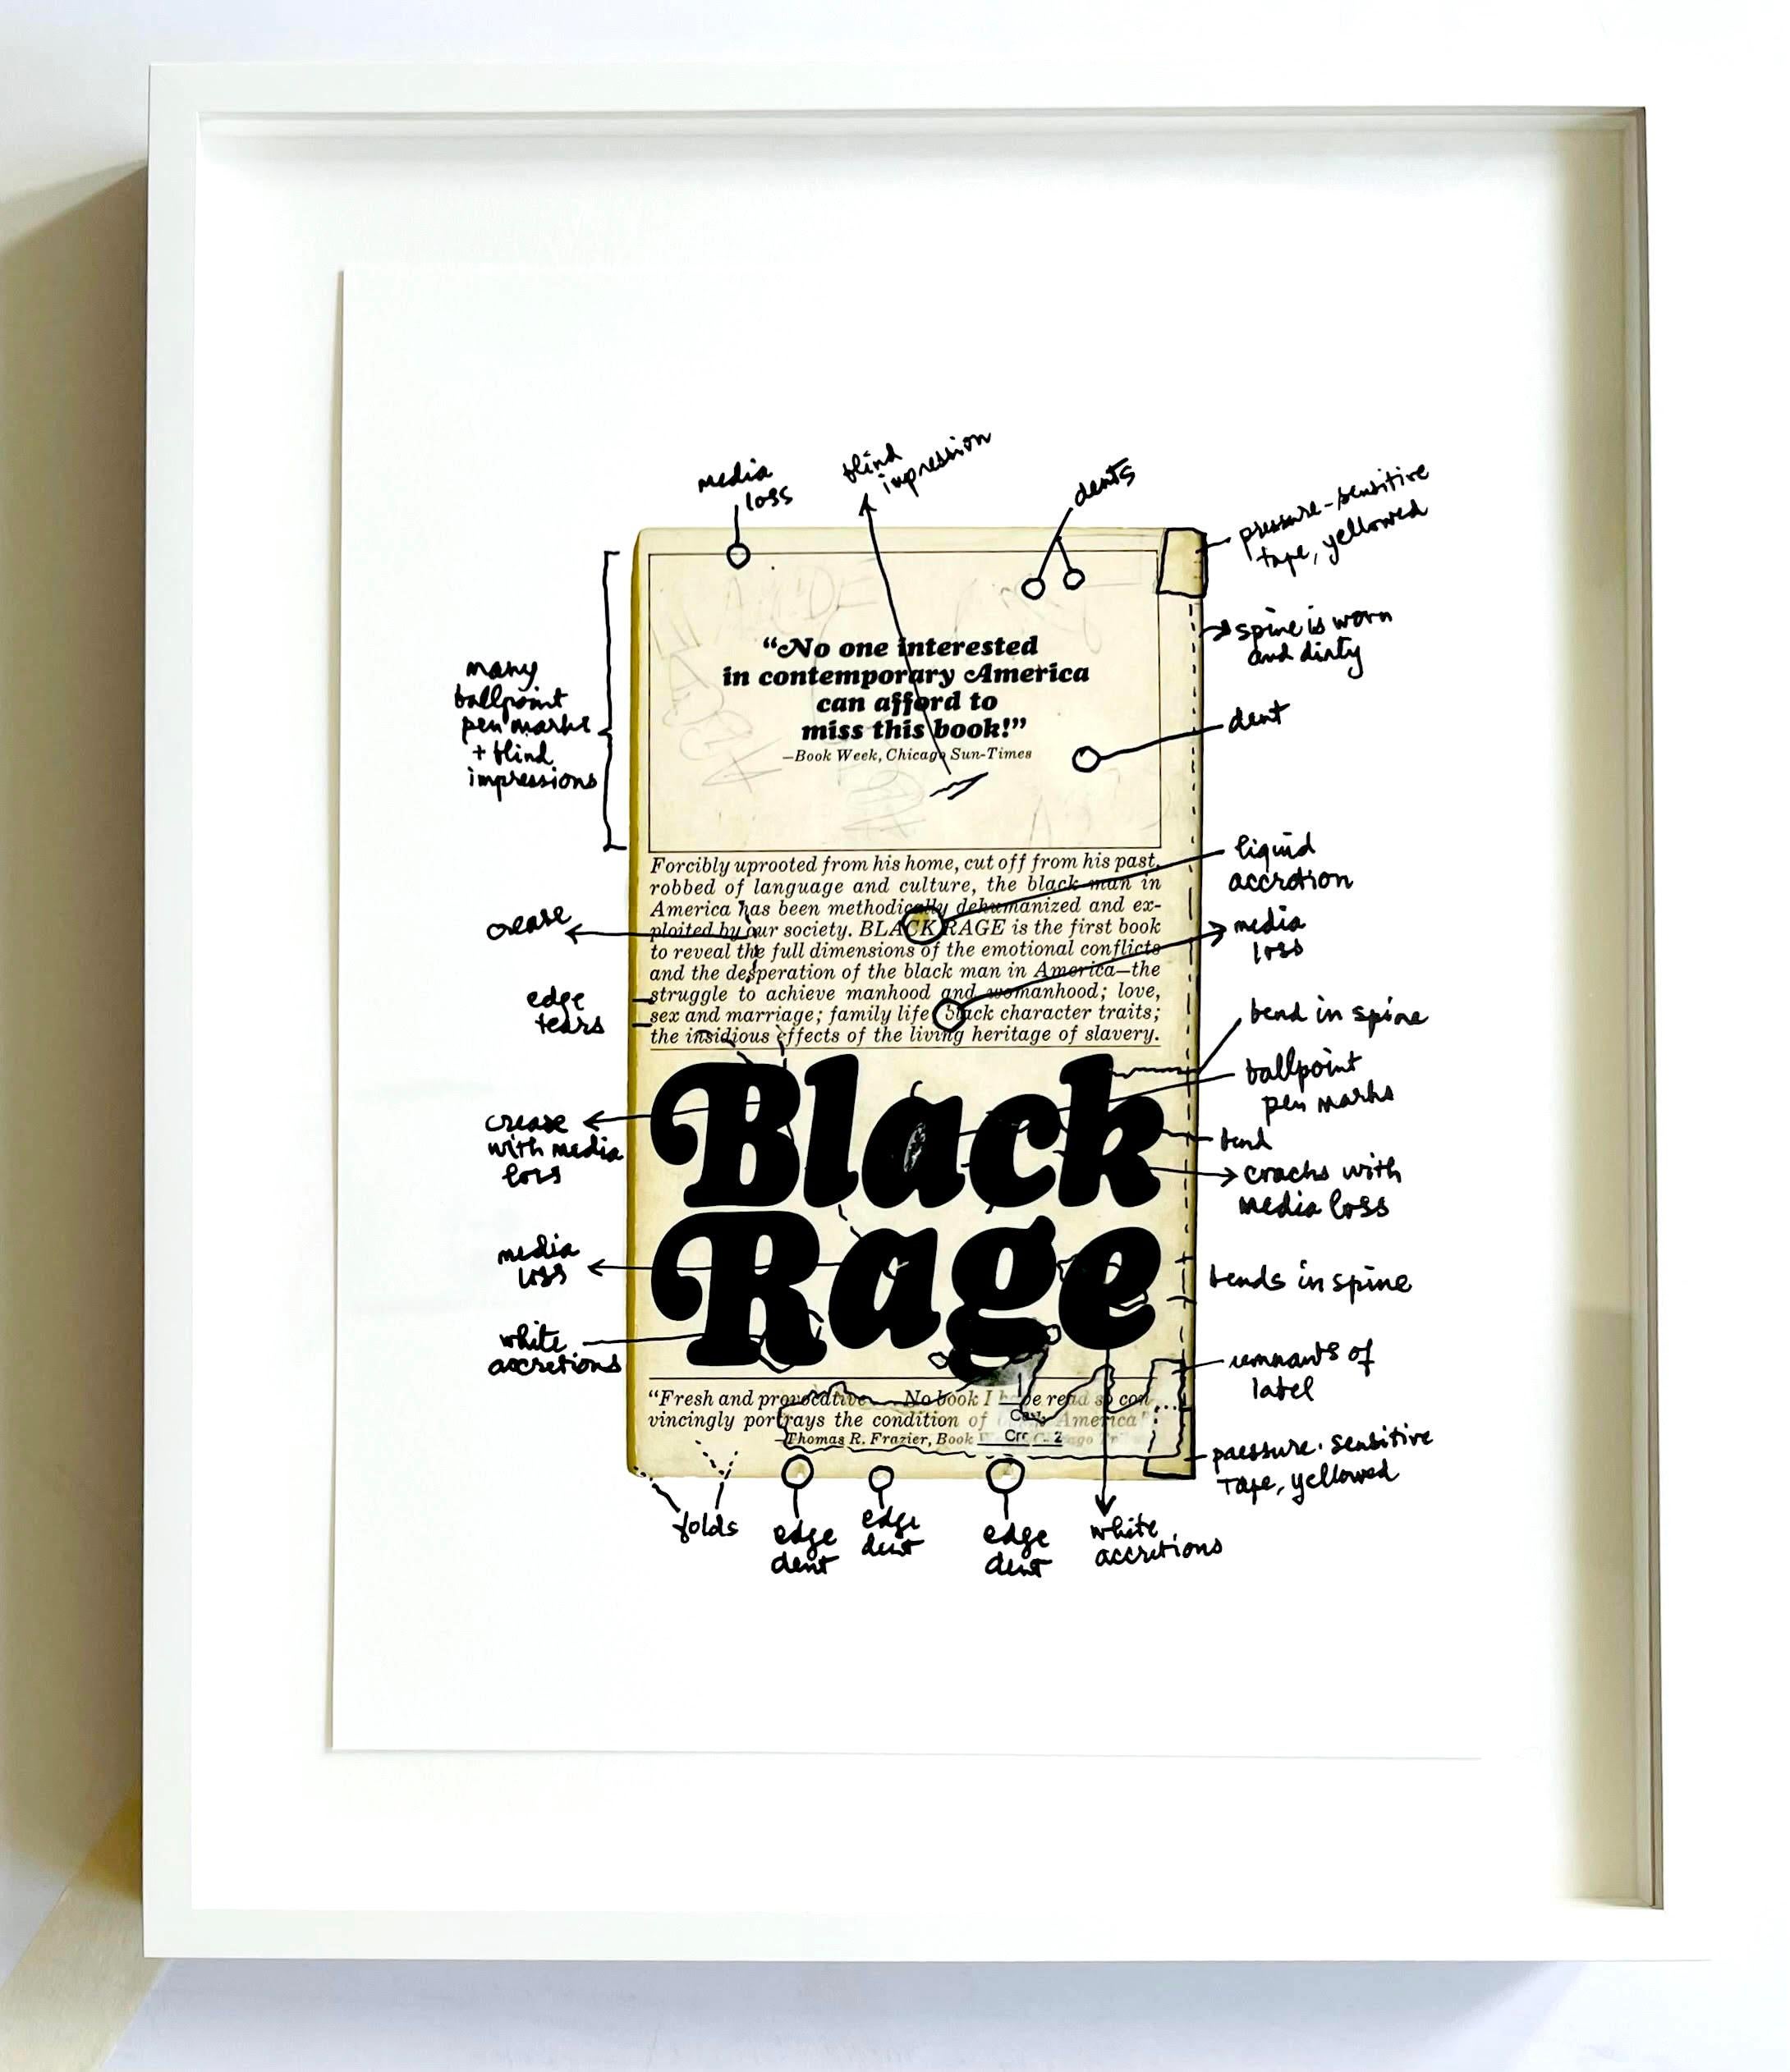 media
loss
blind
impression
dents
pressure-sensitive
tape, yellowed
many
ballpoint
pen marks
+ blind
impressions
spine is worn
and dirty
dent
“No one interested
in contemporary America
can afford to
miss this book!”
—Book Week, Chicago Sun-Times
Forcibly uprooted from his home, cut off from his past,
robbed of language and culture, the black man in
America has been methodically dehumanized and ex-
ploited by our society. BLACK RAGE is the first book
to reveal the full dimensions of the emotional conflicts
and the desperation of the black man in America—the
struggle to achieve manhood and womanhood; love,
sex and marriage; family life; black character traits;
the insidious effects of the living heritage of slavery.
liquid
accretion
crease
media
loss
edge
tears
bend in spine
ballpoint
pen marks
Black
Rage
crease
with media
loss
bend
cracks with
media loss
media
loss
bends in spine
white
accretions
remnants of
label
“Fresh and provocative ... No book I have read so con-
vincingly portrays the condition of America”
—Thomas R. Frazier, Book
pressure-sensitive
tape, yellowed
folds
edge
dent
edge
dent
edge
dent
white
accretions